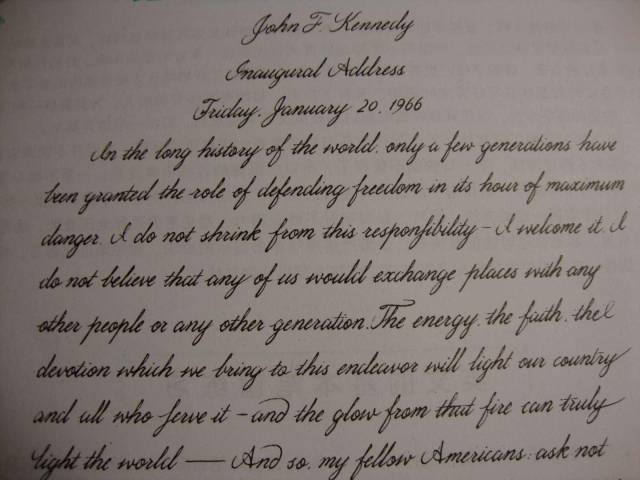 John F. Kennedy
Inaugural Address
Friday, January 20, 1966
In the long history of the world, only a few generations have
been granted the role of defending freedom in its hour of maximum
danger. I do not shrink from this responsibility – I welcome it. I
do not believe that any of us would exchange places with any
other people or any other generation. The energy, the faith, the
devotion which we bring to this endeavor will light our country
and all who serve it – and the glow from that fire can truly
light the world —— And so, my fellow Americans: ask not